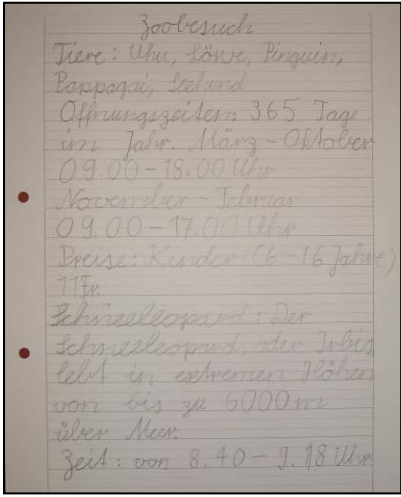 Zoobesuch
Tiere: Uhu, Löwe, Pinguin,
Pappagai, Seehund
Öffnungszeiten: 365 Tage
im Jahr. März - Oktober
09.00 - 18.00 Uhr
November - Februar
09.00 - 17.00 Uhr
Preise: Kinder (6 - 16 Jahre)
11Fr.
Schneeleopard: Der
Schneeleopard, oder Irbis,
lebt in extremen Höhen
von bis zu 6000m
über Meer.
Zeit: von 8.40 - 9.18 Uhr